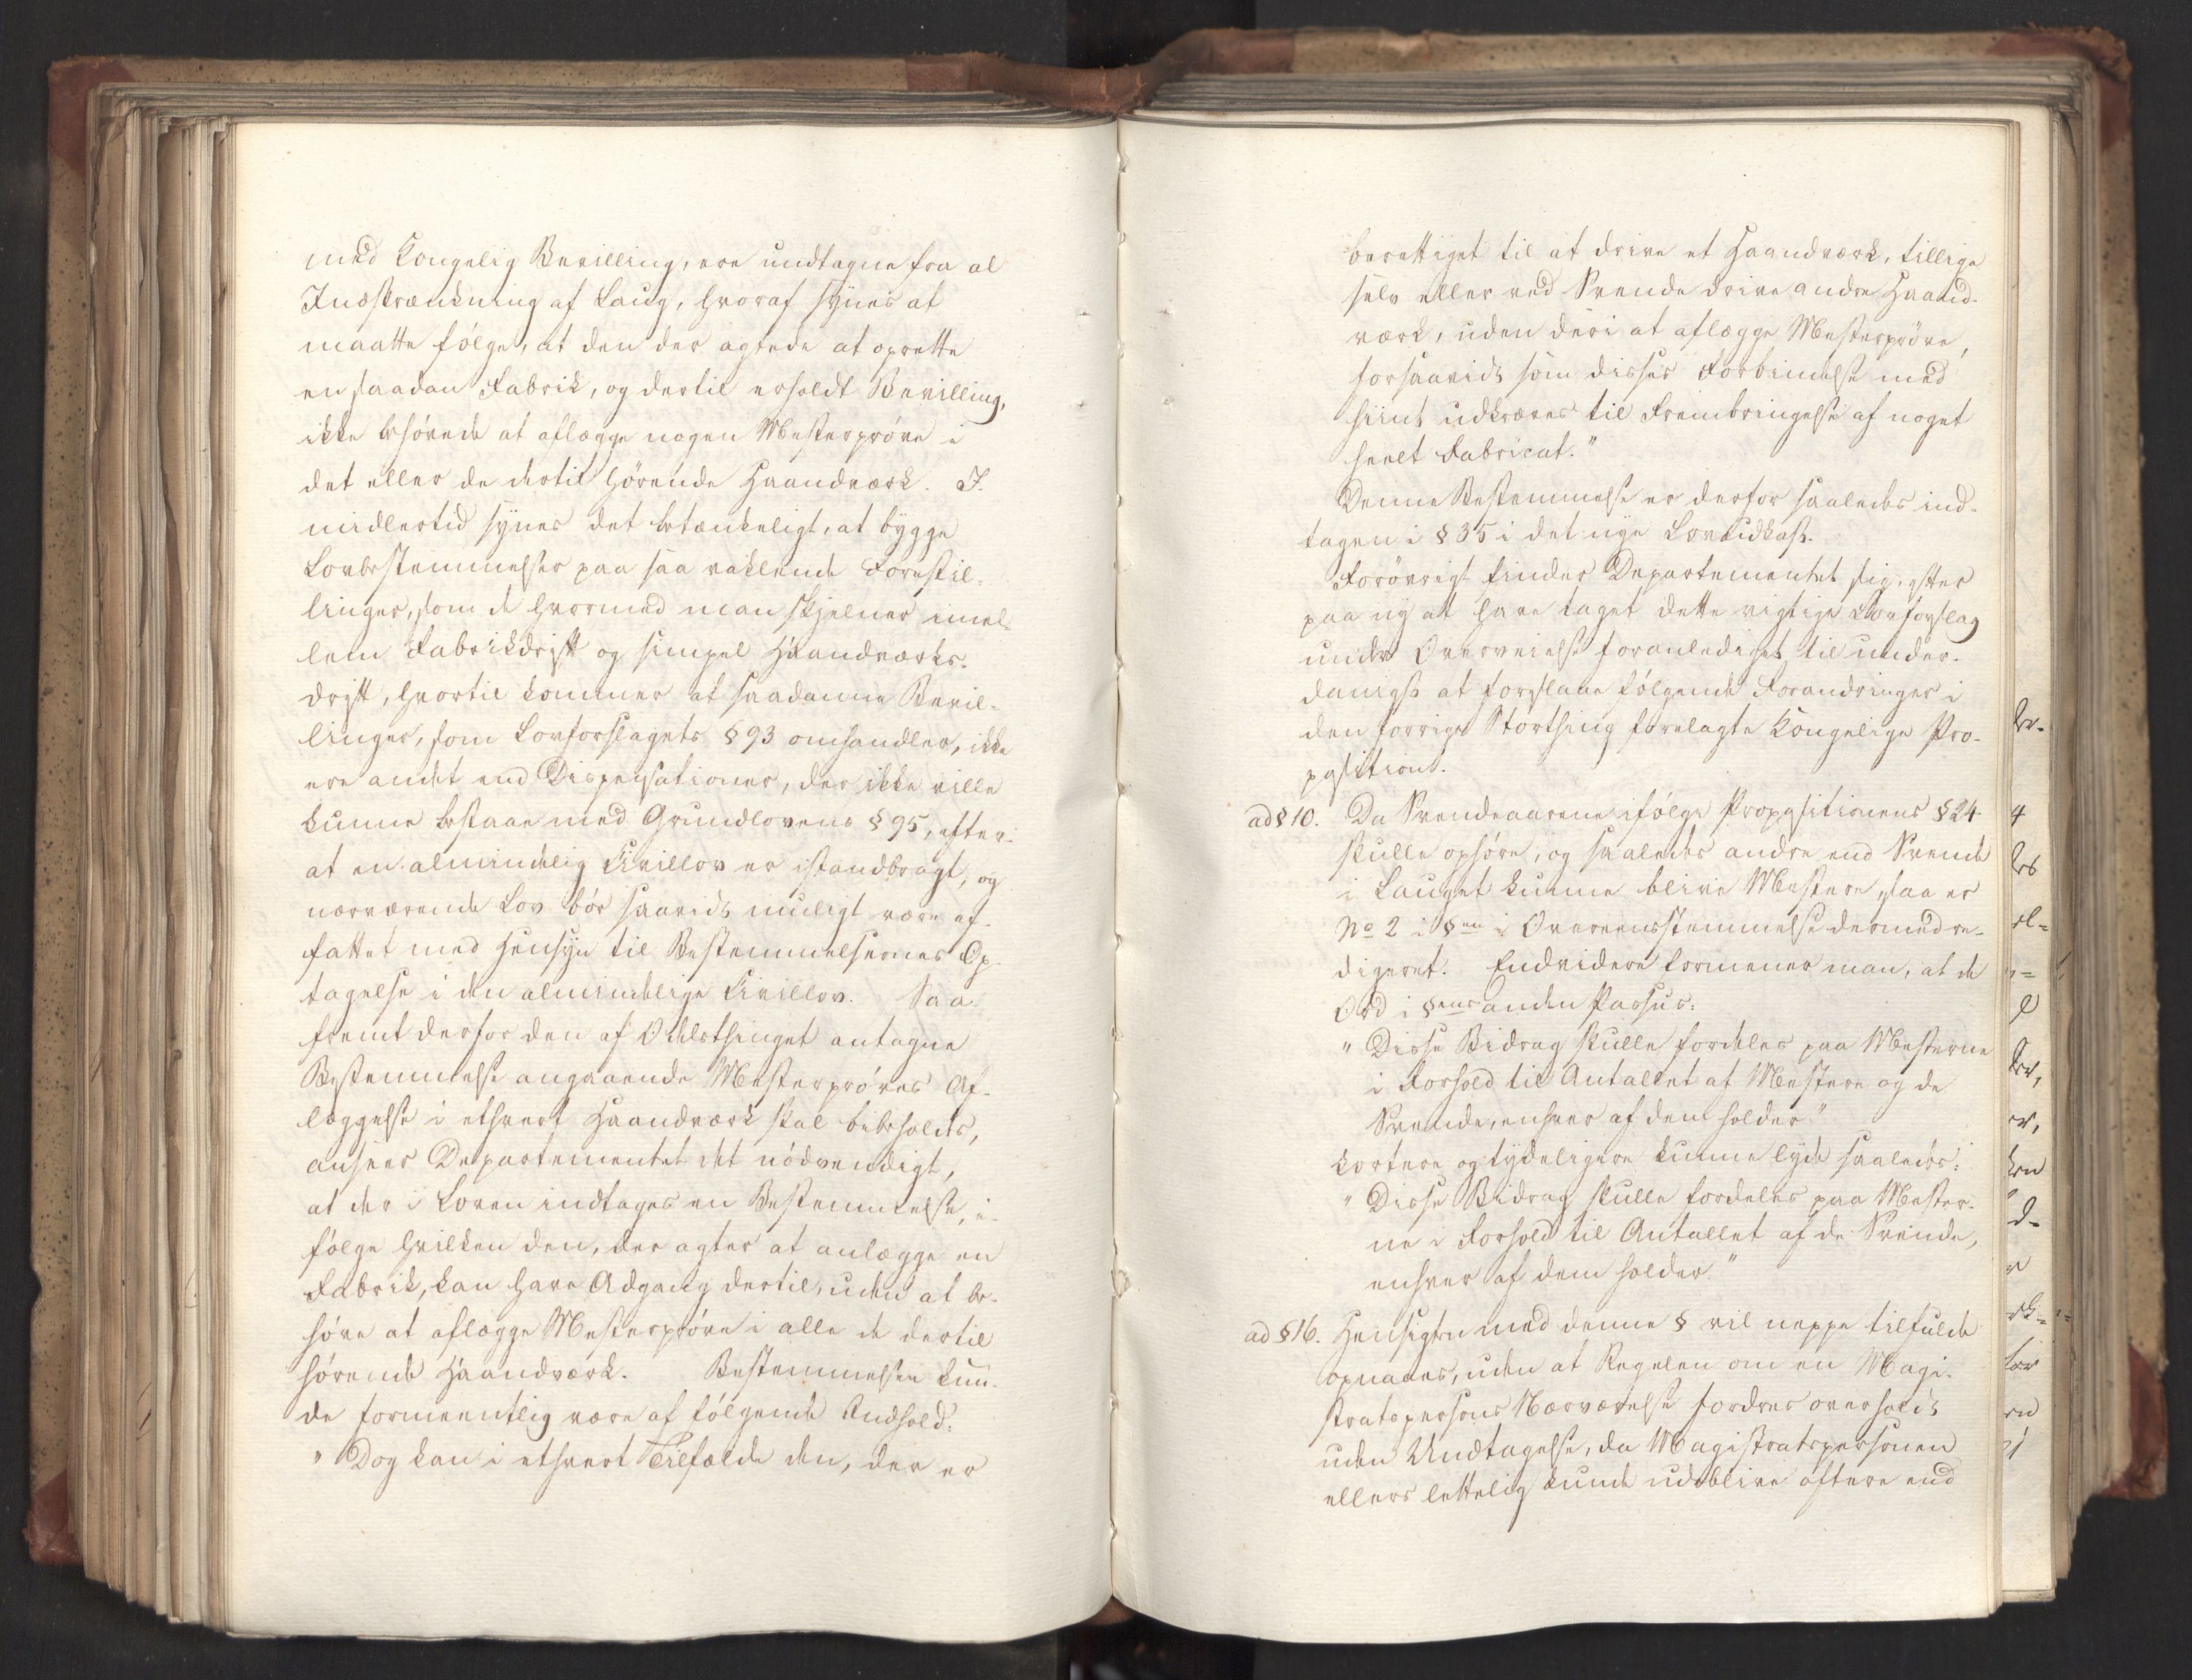 med Kongelig Bevilling, ere undtagne fra al
Indskrænkning af Laug, hvoraf synes at
maatte følge, at den der agtede at oprette
en saadan Fabrik, og dertil erholdt Bevilling,
ikke behøvede at aflægge nogen Mesterprøve i
det eller de dertil hørende Haandværk. I-
midlertid synes det betænkeligt, at bygge
Lovbestemmelser paa saa vaklende Forestil-
linger, som de hvormed man skjelner imel-
lem Fabrikdrift og simpel Haandværks-
drift, hvortil kommer at saadanne Bevil-
linger, som Lovforslagets § 93 omhandler, ikke
ere andet end Dispensationer, der ikke ville
kunne bestaae med Grundlovens § 95, efter-
at en almindelig Civillov er istandbragt, og
nærværende Lov bør saavidt muligt være af-
fattet med Hensyn til Bestemmelsernes Op-
tagelse i den almindelige Civillov. Saa-
fremt derfor den af Odelsthinget antagne
Bestemmelse angaaende Mesterprøves Af-
læggelse i ethvert Haandværk skal beholdes,
ansees Departementet det nødvendigt,
at der i Loven indtages en Bestemmelse, i-
følge hvilken den, der agter at anlægge en
Fabrik, kan have Adgang dertil, uden at be-
høve at aflægge Mesterprøve i alle de dertil
hørende Haandværk. Bestemmelsen kun-
de formeentlig være af følgende Indhold:
" Dog kan i ethvert Tilfælde den, der er
berettiget til at drive et Haandværk, tillige
selv eller ved Svende drive andre Haand-
værk, uden deri at aflægge Mesterprøve,
forsaavidt som disses Forbindelse med
hiint udkræves til Frembringelse af noget
heelt Fabricat."
Denne Bestemmelse er derfor saaledes ind-
tagen i § 35 i det nye Lovudkast.
Forøvrigt finder Departementet sig, efter
paa ny at have taget dette vigtige Lovforslag
under Overveielse foranlediget til under-
danigst at foreslaae følgende Forandringer i
den forrige Storthing forelagte Kongelige Pro-
position.
ad § 10. Da Svendeaarene ifølge Propositionens § 24
skulle ophøre, og saaledes andre end Svende
i Lauget kunne blive Mestere, saa er
No 2 i §en i Overeensstemmelse dermed re-
digeret. Endvidere formener man, at de
Ord i §ens anden Passus:
" Disse Bidrag skulle fordeles paa Mesterne
i Forhold til Antallet af Mestere og de
Svende, enhver af dem holder"
kortere og tydeligere kunne lyde saaledes:
" Disse Bidrag skulle fordeles paa Mester-
ne i Forhold til Antallet af de Svende,
enhver af dem holder."
ad § 16. Hensigten med denne § vil neppe tilfulde
opnaaes, uden at Regelen om en Magi-
stratspersons Nærværelse fordres overholdt
uden Undtagelse, da Magistratspersonen
ellers lettelig kunde udeblive oftere end